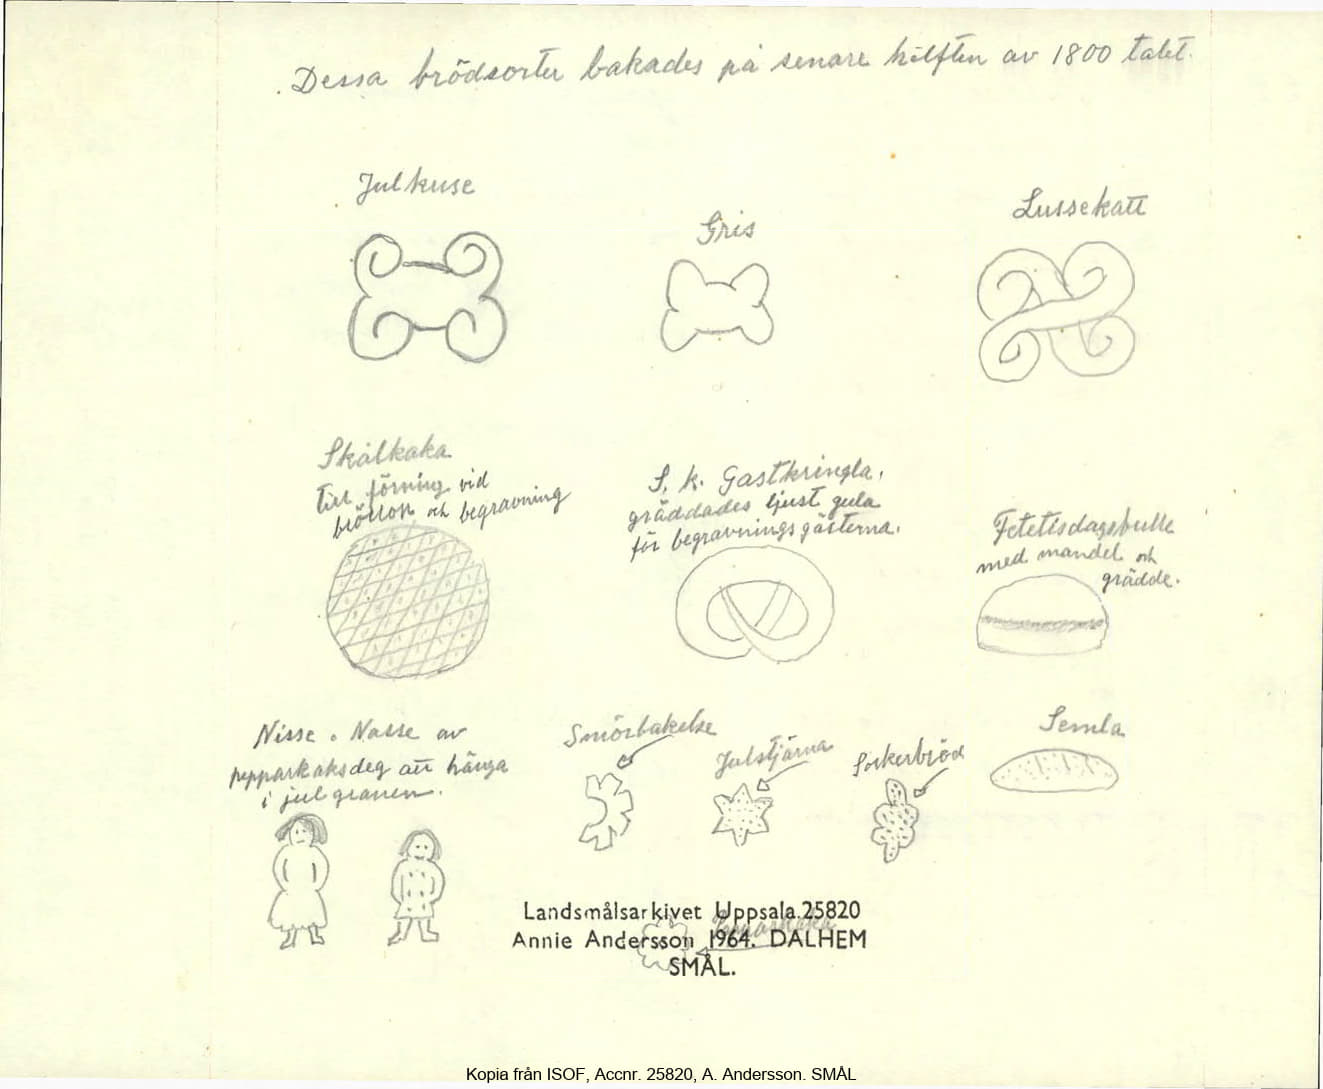 Dessa brödsorter bakades på senare hälften av 1800 talet.
Julkuse
Gris
Lussekatt
Skålkaka
till förning vid
bröllop och begravning
S. k. Gastkringla,
gräddades ljust gula
för begravningsgästerna.
Fetetisdagsbulle
med mandel och
grädde.
Nisse o Nasse av
pepparkaksdeg att hänga
i julgranen.
Smörbakelse
Julstjärna
Sockerbröd
Semla
Pepparkaka
Landsmålsarkivet Uppsala.25820
Annie Andersson 1964. DALHEM
SMÅL.
Kopia från ISOF, Accnr. 25820, A. Andersson. SMÅL